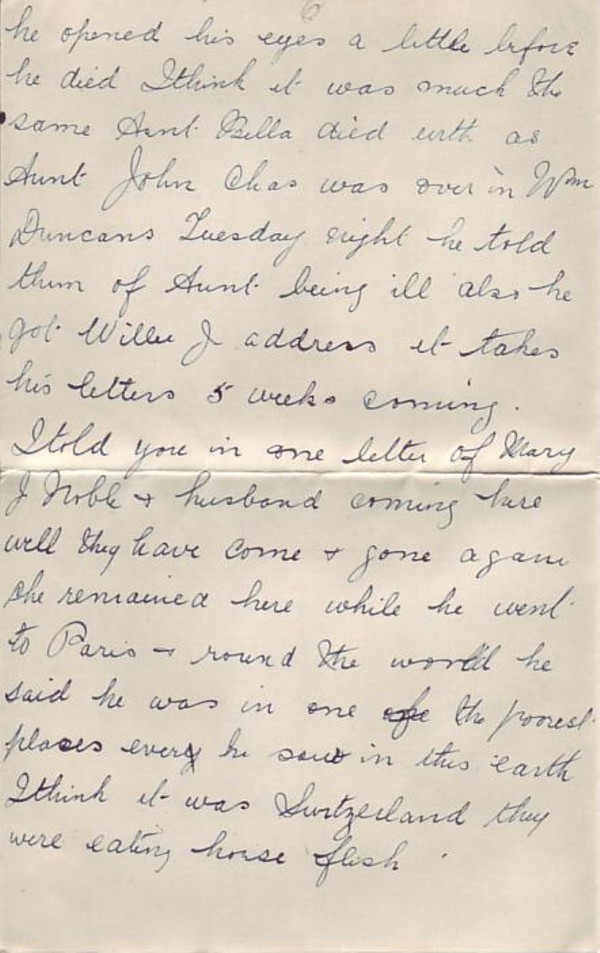 6
he opened his eyes a little before
he died I think it was much the
same Aunt Bella died with as
Aunt John Chas was over in Wm
Duncans Tuesday night he told
them of Aunt being ill also he
got Willie J address it takes
his letters 5 weeks coming.
I told you in one letter of Mary
J Noble + husband coming here
well they have come + gone again
she remained here while he went
to Paris + round the world he
said he was in one of the poorest
places every he saw in this earth
I think it was Switzerland they
were eating horse flesh.